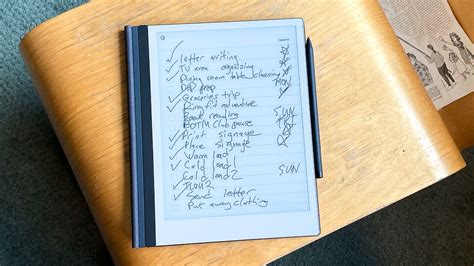 ✓ letter writing
✓ TV area organizing
✓ Dining room table cleaning
D&D prep MON
✓ Groceries trip
✓ Ring fit adventure
Book reading SUN
BOTM Club pause
✓ Print signage
✓ Place signage
Warm load
✓ Cold load 1
Cold load 2 SUN
✓
✓ Send letter
Put away clothing